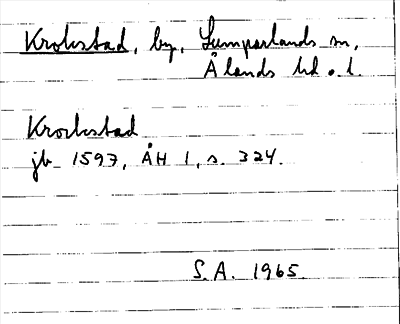 Krokstad, by, Lumparlands sn,
Ålands hd o. l.
Krockstad
jb 1597, ÅH 1, s. 324.
S.A. 1965